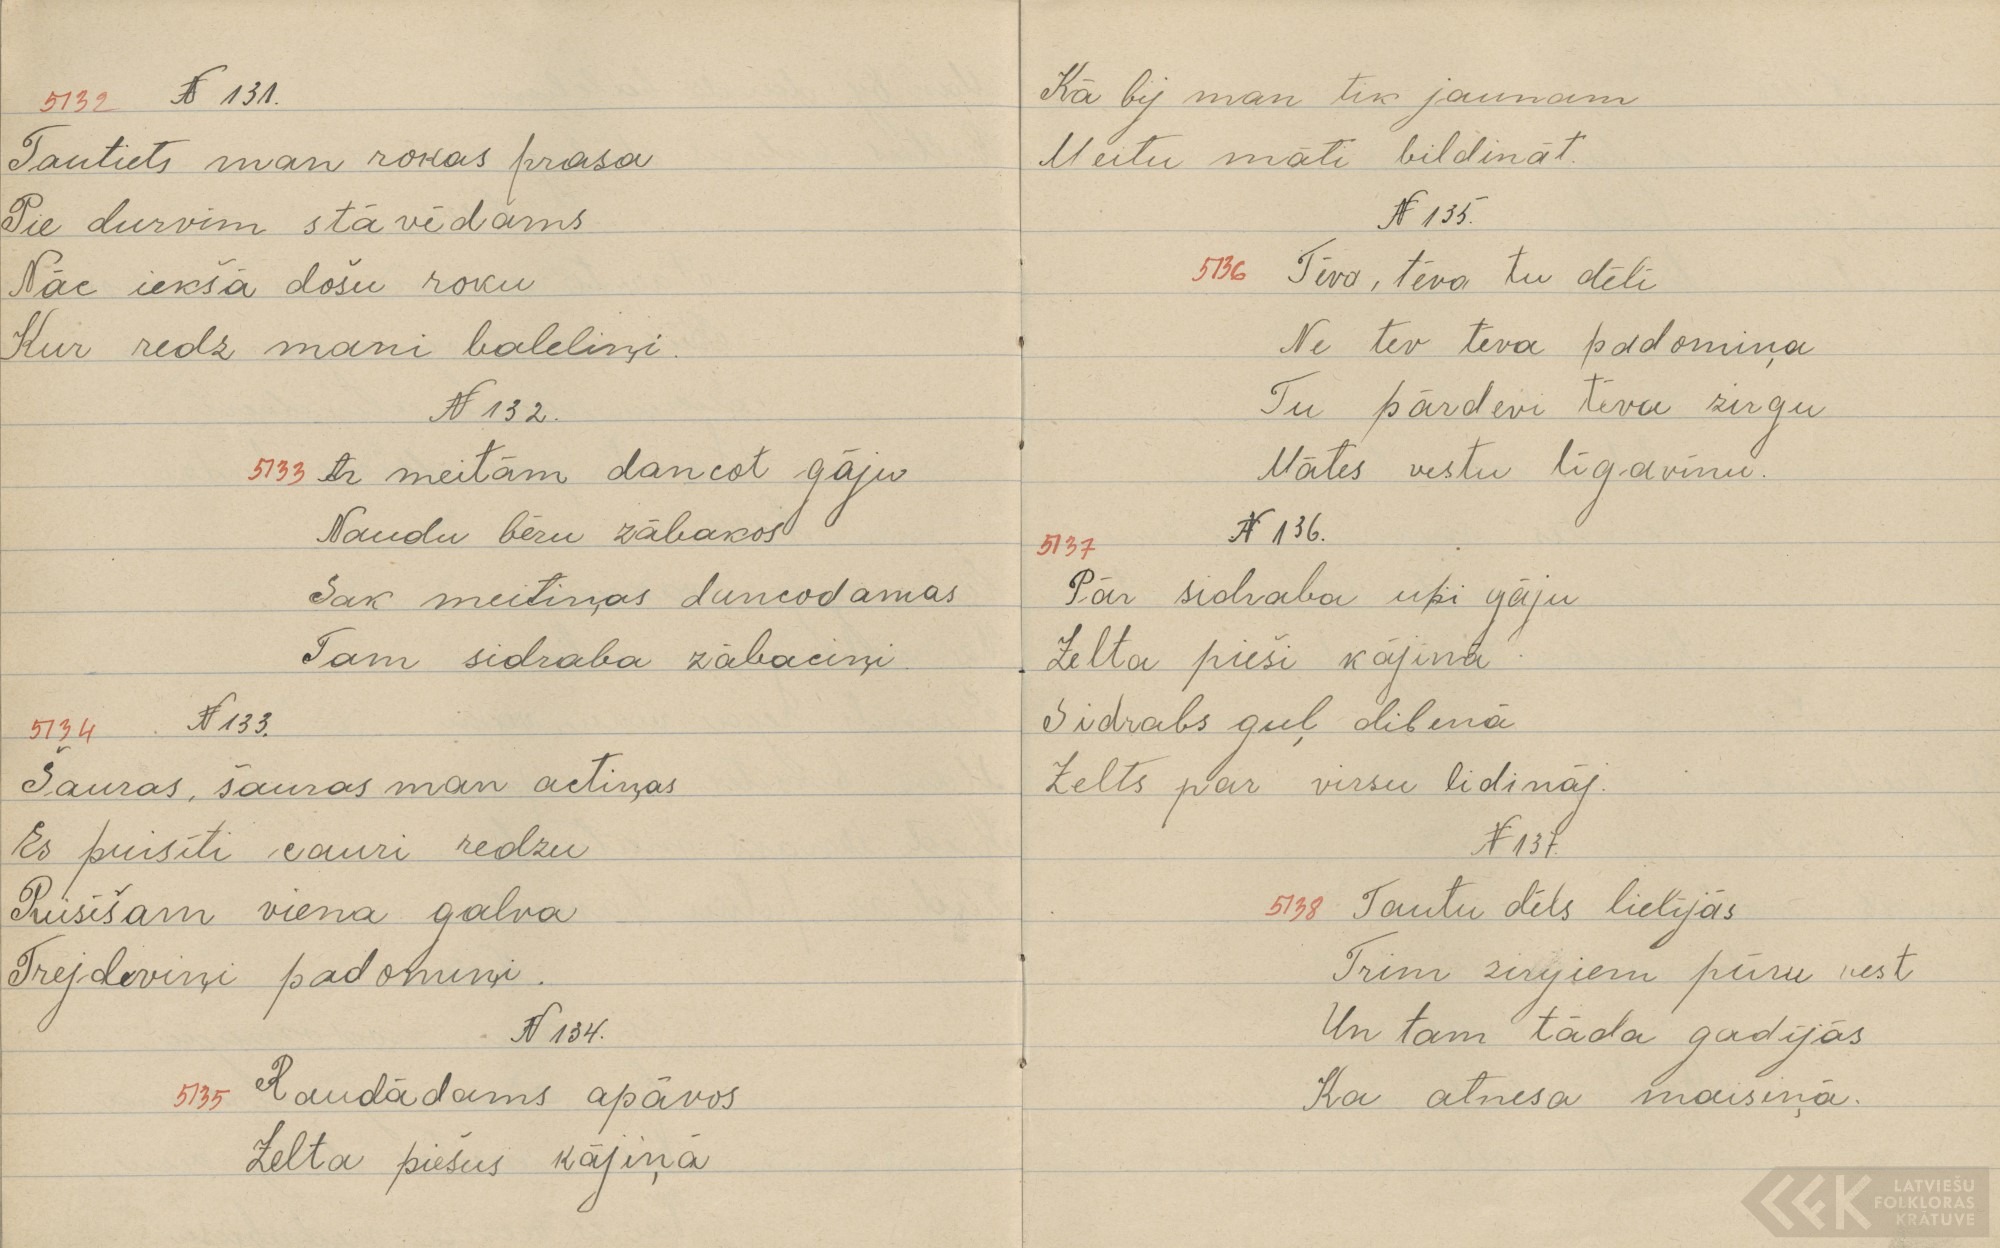 5132 № 131.
Tautiets man rokas prasa
Pie durvim stāvēdams
Nāc iekšā došu roku
Kur redz mani baleliņi.
№ 132.
5133 Ar meitām dancot gāju
Naudu bēru zābakos
Sak meitiņas dancodamas
Tam sidraba zābaciņi.
5134 № 133.
Šauras, šauras man actiņas
Es puisīti cauri redzu
Puisīšam viena galva
Trejdeviņi padomiņi.
№ 134.
5135 Raudādams apāvos
Zelta piešus kājiņā
Kā bij man tik jaunam
Meitu māti bildināt.
№ 135.
5136 Tēva, tēva tu dēli
Ne tev tēva padomiņa
Tu pārdevi tēva zirgu
Mātes vestu līgaviņu.
5137 № 136.
Pār sidraba upi gāju
Zelta pieši kājinā.
Sidrabs guļ dibenā
Zelts par virsu lidināj.
№ 137.
5138 Tautu dēls lielijās
Trim zirgiem pūru vest
Un tam tāda gadijās
Ka atnesa maisiņā.
LATVIEŠU
FOLKLORAS
KRĀTUVE